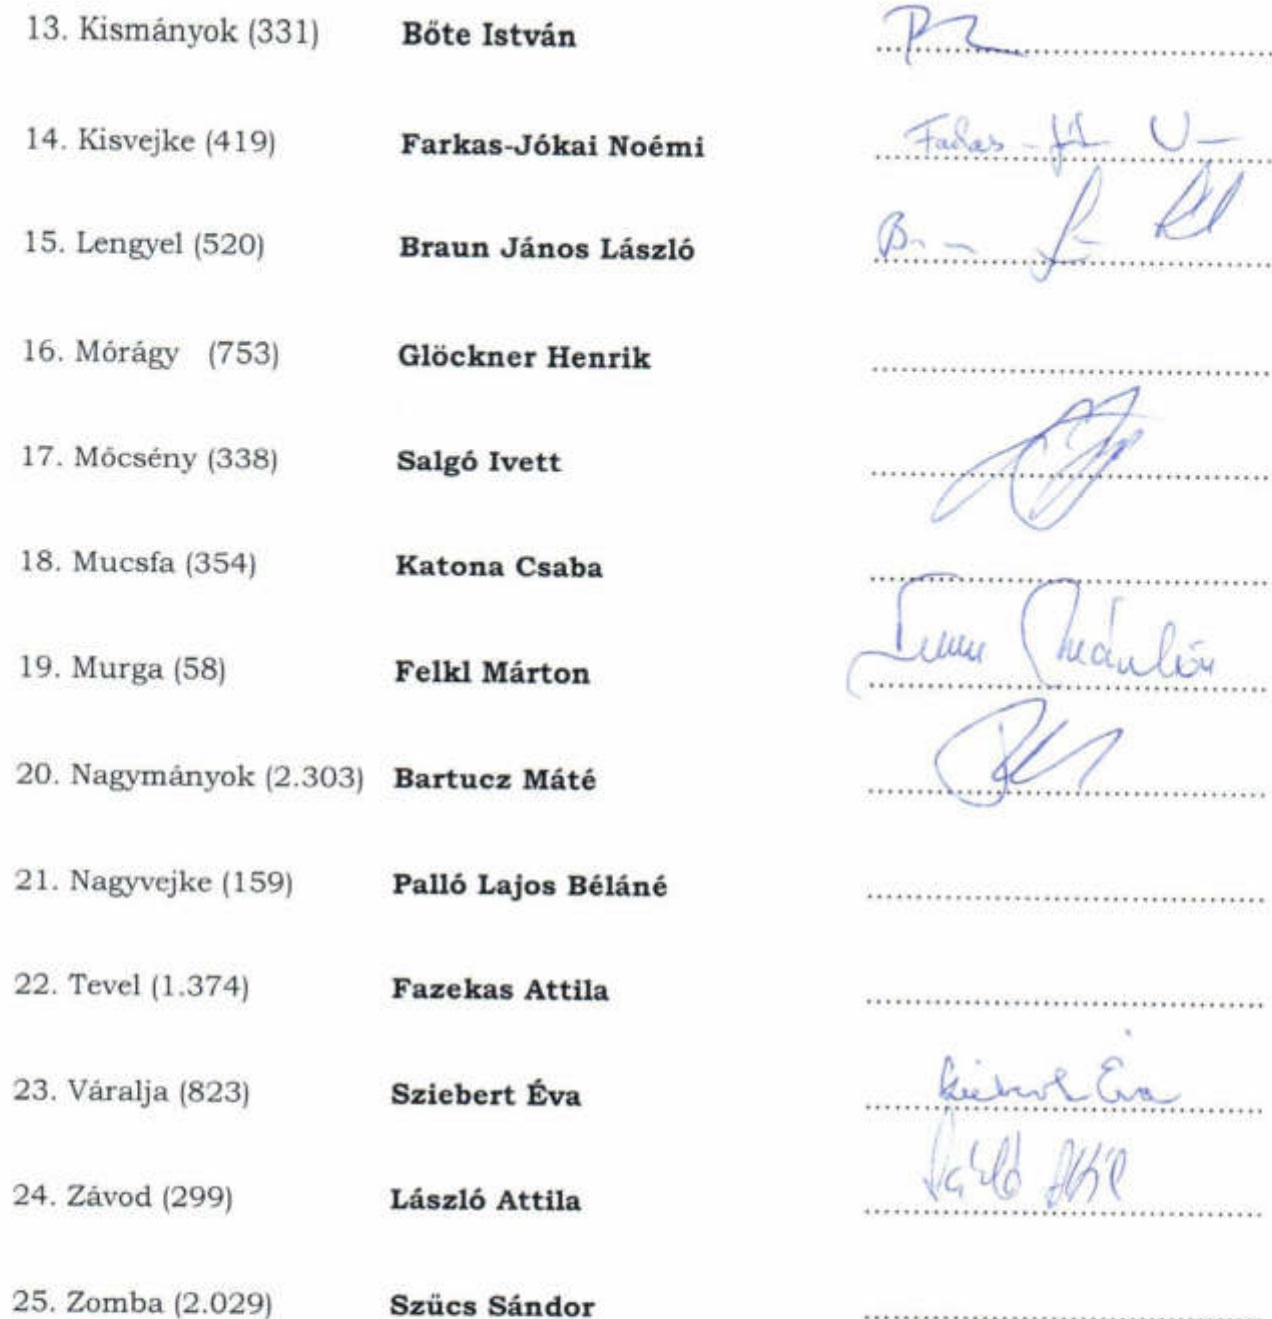 13. Kismányok (331) Bőte István
14. Kisvejke (419) Farkas-Jókai Noémi Farkas-
15. Lengyel (520) Braun János László
16. Mórágy (753) Glöckner Henrik
17. Mőcsény (338) Salgó Ivett
18. Mucsfa (354) Katona Csaba
19. Murga (58) Felkl Márton
20. Nagymányok (2.303) Bartucz Máté
21. Nagyvejke (159) Palló Lajos Béláné
22. Tevel (1.374) Fazekas Attila
23. Váralja (823) Sziebert Éva Sziebert Éva
24. Závod (299) László Attila László Attila
25. Zomba (2.029) Szűcs Sándor